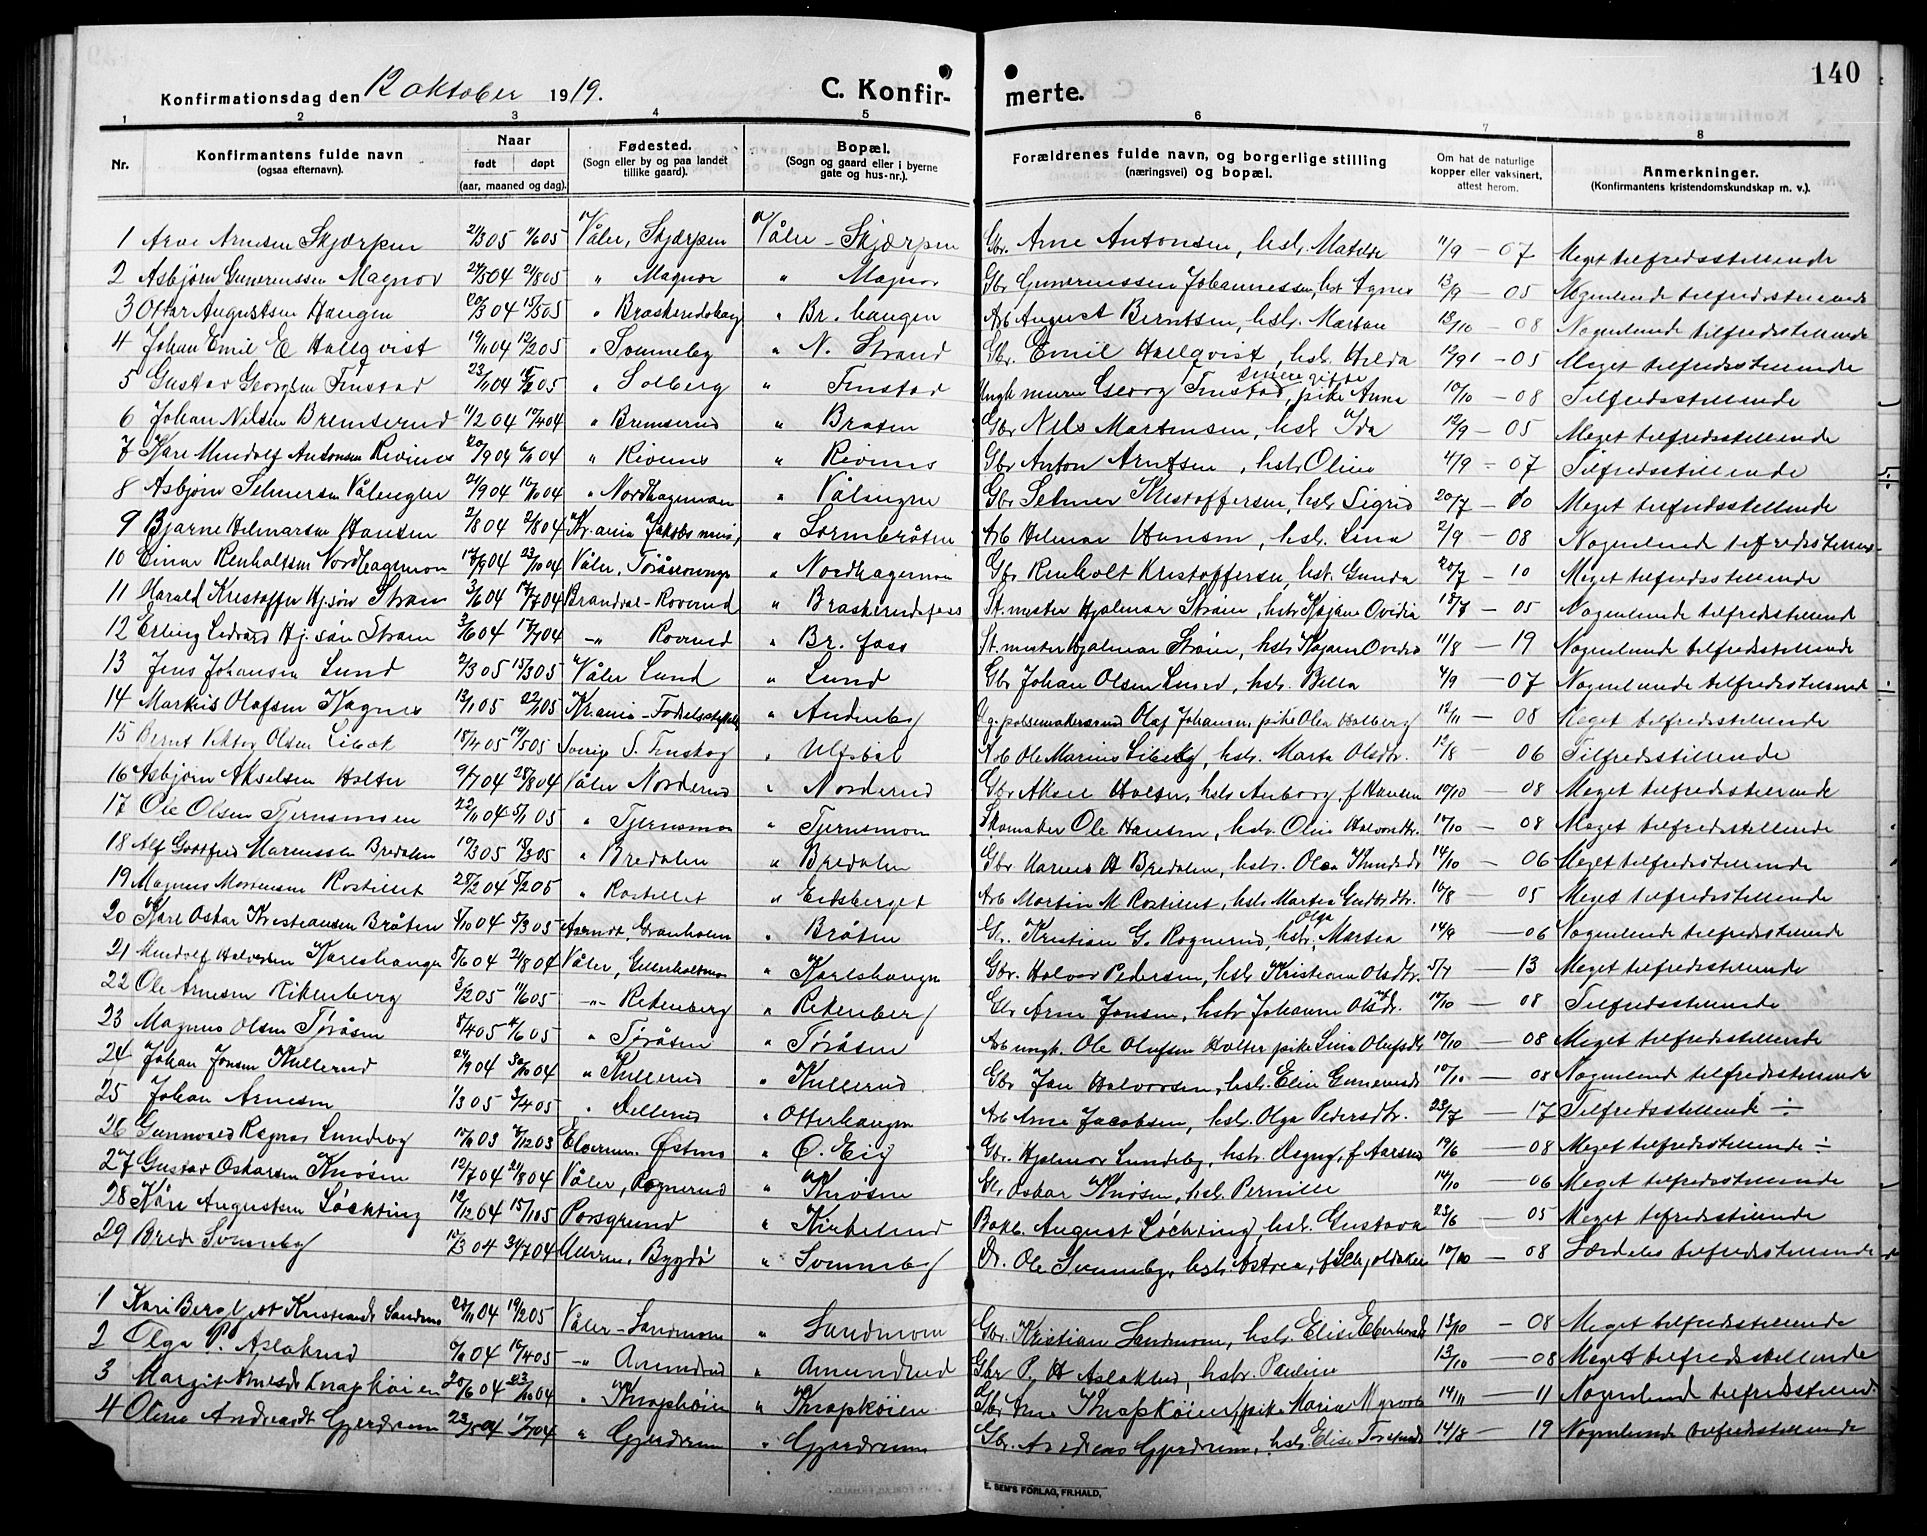 140
Konfirmationsdag den 12 oktober 1919. C. Konfir- merte.
1 2 3 4 5 6 7 8
Nr. Konfirmantens fulde navn (ogsaa efternavn). Naar født døpt (aar, maaned og dag). Fødested. (Sogn eller by og paa landet tillike gaard). Bopæl. (Sogn og gaard eller i byerne gate og hus-nr.). Forældrenes fulde navn, og borgerlige stilling (næringsvei) og bopæl. Om hat de naturlige kopper eller vaksinert, attest herom. Anmerkninger. (Konfirmantens kristendomskundskap m. v.).
1 Arve Arnesen Skjærpen 2/3 05 Våler, Skjærpen Våler - Skjærpen Gbr. Arne Antonsen, hstr. Matilde 11/9 - 07 Meget tilfredsstillende
2 Asbjørn Gunerenssen Magnor 04 05 " Magnor " Magnor Gbr Gunerenssen Johannessen, hst Agnes 13/9 - 05 Nogenlunde tilfredsstillende
3 Ottar Augustsen Haugen 04 05 " Braskeredshaug " Br. haugen Arb August Berntsen, hstr. Martea 13/10 - 08 Nogenlunde tilfredsstillende
4 Johan Emil E Hallqvist 19/11 04 12/2 05 " Svenneby " N. Strand Gbr. Emil Hallqvist, hstr. Hilda 12/9 - 05 Meget tilfredsstillende
5 Gustav Georgsen Finstad 23/11 04 05 " Solberg " Finstad Ungk murer Georg Finstad, senere gifte pike Anna 10/10 - 08 Tilfredsstillende
6 Johan Nilsen Bremserud 11/2 04 17/4 04 " Bremserud " Braten Gbr Nils Martensen, hstr Ida 12/9 - 05 Meget tilfredsstillende
7 Kåre Mindolf Antonsen Rivenes 20/9 04 04 " Rivenes " Revenes Gbr Anton Arntsen, hstr Oline 11/9 - 07 Tilfredsstillende
8 Asbjørn Selmersen Vålengen 21/9 04 16/10 04 " Nordhagemoen " Vålengen Gbr Selmer Kristoffersen, hstr Sigrid 20/7 - 10 Meget tilfredsstillende
9 Bjarne Helmarsen Hansen 2/8 04 2/8 04 Kr.ania Jakobs men, " Sormbråten Arb Helmar Hansen, hstr. Lina 2/9 - 08 Nogenlunde tilfredsstillende
10 Einar Renholtsen Nordhagemoen 17/9 04 23/10 04 Våler, " Nordhagemoen Gbr Renholt Kristoffersen, hst. Gunda 20/7 - 10 Meget tilfredsstillende
11 Harald Kristoffer Hj.søn Strøm 3/6 04 17/7 04 Brandval - Roverud " Braskeredsfoss St.mester Hjalmar Strøm, hstr Kajane Ovidia 18/7 - 05 Nogenlunde tilfredsstillende
12 Erling Hj.søn Strøm 3/6 04 17/7 04 -"- Roverud " Br. foss St.mester Hjalmar Strøm, hstr Kajane Ovidia 11/8 - 19 Nogenlunde tilfredsstillende
13 Jens Johansen Lund 2/3 05 15/3 05 Våler Lund " Lund Gbr Johan Olsen Lund, hstr. Bella 4/9 - 07 Nogenlunde tilfredsstillende ÷
14 Markus Olafsen Kagnes 13/1 05 22/1 05 Kr.ania - Fødselsstiftelsen " Andenby Olaf Johansen, pike Olea Halberg 12/11 - 08 Meget tilfredsstillende
15 Bernt Viktor Olsen Libæk 18/4 05 19/5 05 Sverige S. Finskog " Ulfsbøl Arb Ole Marius Libæk, hstr. Marta Olsdtr. 12/8 06 Tilfredsstillende
16 Asbjørn Akselsen Holter 9/7 04 28/8 04 Våler Norderud " Norderud Gbr Aksel Holter, hstr Anborg, f Hansen 10/10 - 08 Meget tilfredsstillende
17 Ole Olsen Tjernsmoen 22/11 04 5/1 05 " Tjernsmoen " Tjernsmoen Skomaker Ole Hansen, hstr. Oline Halvordtr. 17/10 - 08 Meget tilfredsstillende
18 Alf Gottfred Mariussen Bredalen 17/3 05 05 " Bredalen " Bredalen Gbr Marius H Bredalen, hstr. Olea Knudsdtr 14/10 - 06 Meget tilfredsstillende
19 Magnus Mortensen Rostillet 25/2 04 5/2 05 " Rostillet " Eidsberget Arb Martin M Rostillet, hstr Martea 10/8 - 05 Meget tilfredsstillende
20 Karl Oskar Kristiansen Bråten 04 5/3 05 Aasmot, Granholm " Bråten Gbr. Kristian G. Rognerud, hstr. Olga Martea 14/9 - 06 Nogenlunde tilfredsstillende
21 Mindolf Halvorsen Karlshaugen 5/6 04 21/8 04 Våler, Gillerholtmoen " Karlshaugen Gbr. Halvor Pedersen, hstr Kristiane Olsdtr. 5/7 - 13 Meget tilfredsstillende
22 Ole Arnesen Rikenberg 3/2 05 11/6 05 -"- Rekenberg " Rekenberg Gbr Arne Jonsen, hstr Johanne Olsdtr. 10/10 - 08 Tilfredsstillende
23 Magnus Olsen Toråsen 8/4 05 11/6 05 " Toråsen " Toråsen Arb ungk. Ole Olufsen Holter pike Lina Olufsdtr 10/10 - 08 Meget tilfredsstillende
24 Johan Jonsen Kullerud 24/9 04 30/10 04 " Kullerud " Kullerud Gbr Jon Halvorsen, hstr. Eline Gunerusdtr 10/10 - 08 Nogenlund tilfredsstillende
25 Johan Arnesen 1/3 05 05 " Lillerud " Otterhaugen Arb Arne Jacobsen, hstr Olga Pedersdtr. 23/7 - 17 Tilfredsstillende ÷
26 Gunnvald Ragnar Lundeby 17/6 03 03 Elverum. Østmo " Ø. Eig Gbr. Hjalmar Lundeby, hstr. Dagny, f Aarsrud 19/6 - 08 Meget tilfredsstillende ÷
27 Gustav Oskarsen Knosen 12/7 04 21/8 04 Våler, Rognerud " Knosen Gbr Oskar Knosen, hstr. Pernille 14/10 - 06 Meget tilfredsstillende
28 Kåre Augustsen Løchting 12/12 04 15/1 05 Porsgrund " Kirkelund Bokh. August Løchting, hstr. Gustava 23/6 - 05 Meget tilfredsstillende
29 Brede Svenneby 15/3 04 31/7 04 Ullern, Bygdø " Svenneby Dr. Ole Svenneby, hstr Astrea, f Schjoldaker 10/10 - 08 Særdeles tilfredsstillende
1 Kari Bergljott Kristiansdtr Sandmoen 28/11 04 19/2 05 Våler - Sandmoen " Sandmoen Gbr. Kristian Sandmoen, hstr. Elise 13/10 - 08 Meget tilfredsstillende
2 Olga P. Aslakrud 04 16/4 05 -"- Amundrud " Amundrud Gbr P. H Aslakrud, hstr. Pauline 13/10 - 08 Meget tilfredsstillende
3 Margit Arnesdtr Knapkøien 20/6 04 23/10 04 " Knapkøien " Knapkøien Gbr Arne Knapkøien, pike Maria Myrvold 14/11 - 11 Nogenlund tilfredsstillende
4 Oline Andreasdtr Gjerdrum 23/5 04 17/7 04 " Gjerdrum " Gjerdrum Gbr. Andreas Gjerdrum, hstr Elise 14/8 - 19 Nogenlunde tilfredsstillende
E. SEM'S FORLAG, FR.HALD.